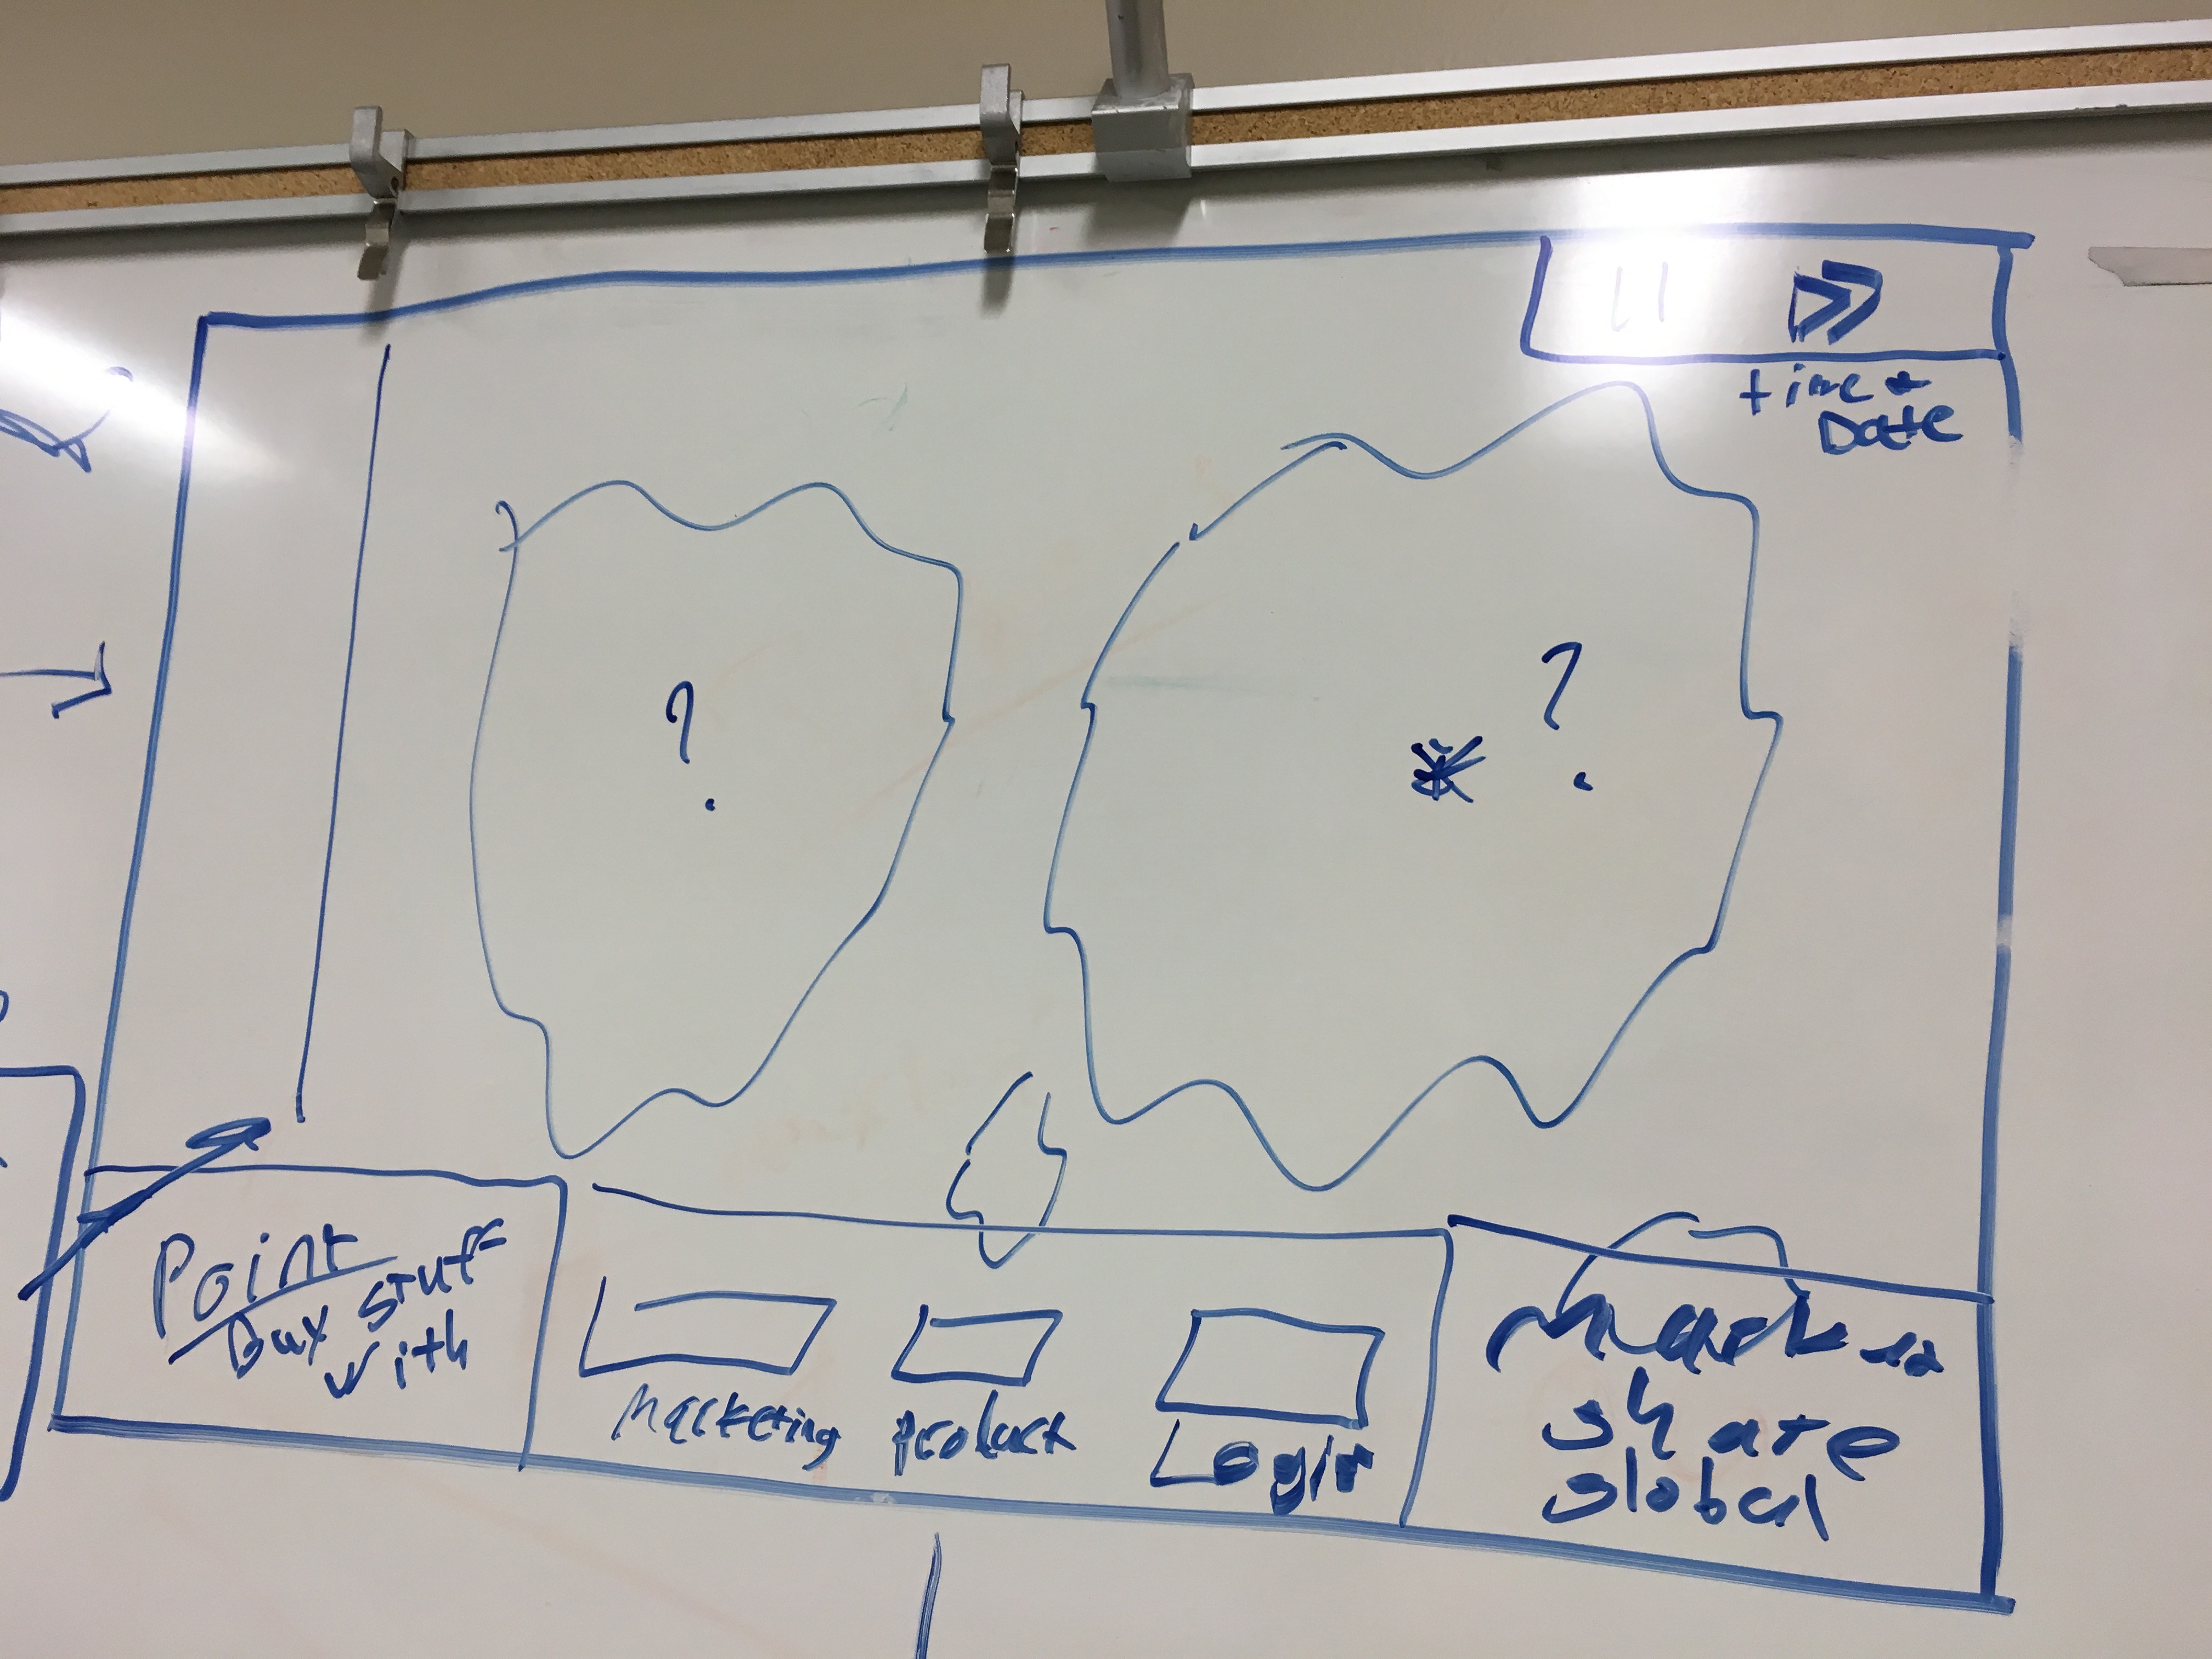 time +
Date
?
?
Point
Buy stuff
with
Marketing
product
Login
Market
share
global